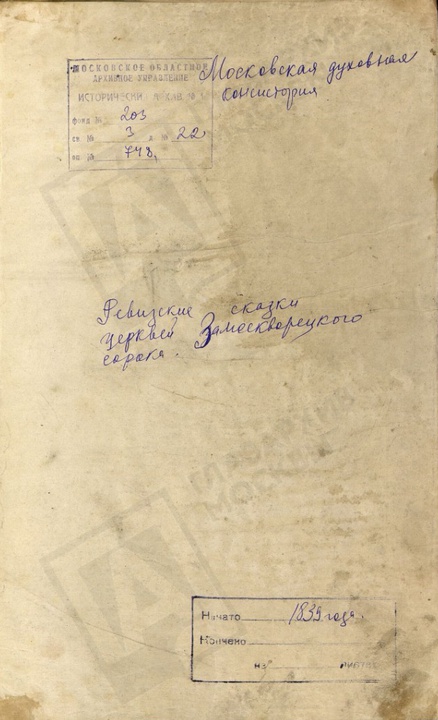 МОСКОВСКОЕ ОБЛАСТНОЕ
АРХИВНОЕ УПРАВЛЕНИЕ
фонд № 203
св № 3 д № 22
оп № 748
Московская духовная
консистория
Ревизские сказки
церквей Замоскворецкого
сорока.
Начато 1839 года.
Кончено
на листах